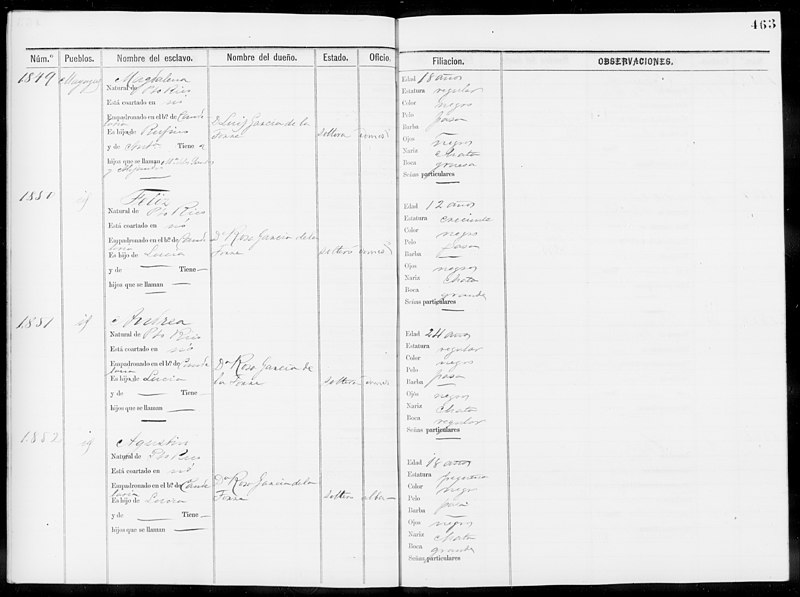 463
Núm.º Pueblos. Nombre del esclavo. Nombre del dueño. Estado. Oficio Filiacion. OBSERVACIONES.
1879 Mayagüez Magdalena
Natural de Pto Rico
Está coartado en nó
Empadronado en el bº. de Cande
laria
Es hijo de Rufino
y de Tiene
hijos que se llaman
y Alejandro
D Luis Garcia de la
Torre
soltera domest
Edad 18 años
Estatura regular
Color negro
Pelo pasa
Barba —
Ojos negros
Nariz chata
Boca gruesa
Señas particulares —
1880 id Feliz
Natural de Pto Rico
Está coartado en nó
Empadronado en el bº. de Cande
laria
Es hijo de Lucia
y de — Tiene —
hijos que se llaman —
Dª Rosa Garcia de la
Torre
soltero domest
Edad 12 años
Estatura creciente
Color negro
Pelo pasa
Barba —
Ojos negros
Nariz chata
Boca grande
Señas particulares —
1881 id Andrea
Natural de Pto Rico
Está coartado en nó
Empadronado en el bº. de Cande
laria
Es hijo de Lucia
y de — Tiene —
hijos que se llaman —
Dª Rosa Garcia de
la Torre
soltera domest
Edad 24 años
Estatura regular
Color negro
Pelo pasa
Barba —
Ojos negros
Nariz chata
Boca regular
Señas particulares —
1882 id Agustin
Natural de Pto Rico
Está coartado en nó
Empadronado en el bº. de Cande
laria
Es hijo de Lucia
y de — Tiene —
hijos que se llaman —
Dª Rosa Garcia de la
Torre
soltero alba—
Edad 18 años
Estatura pequeña
Color negro
Pelo pasa
Barba —
Ojos negros
Nariz chata
Boca grande
Señas particulares —